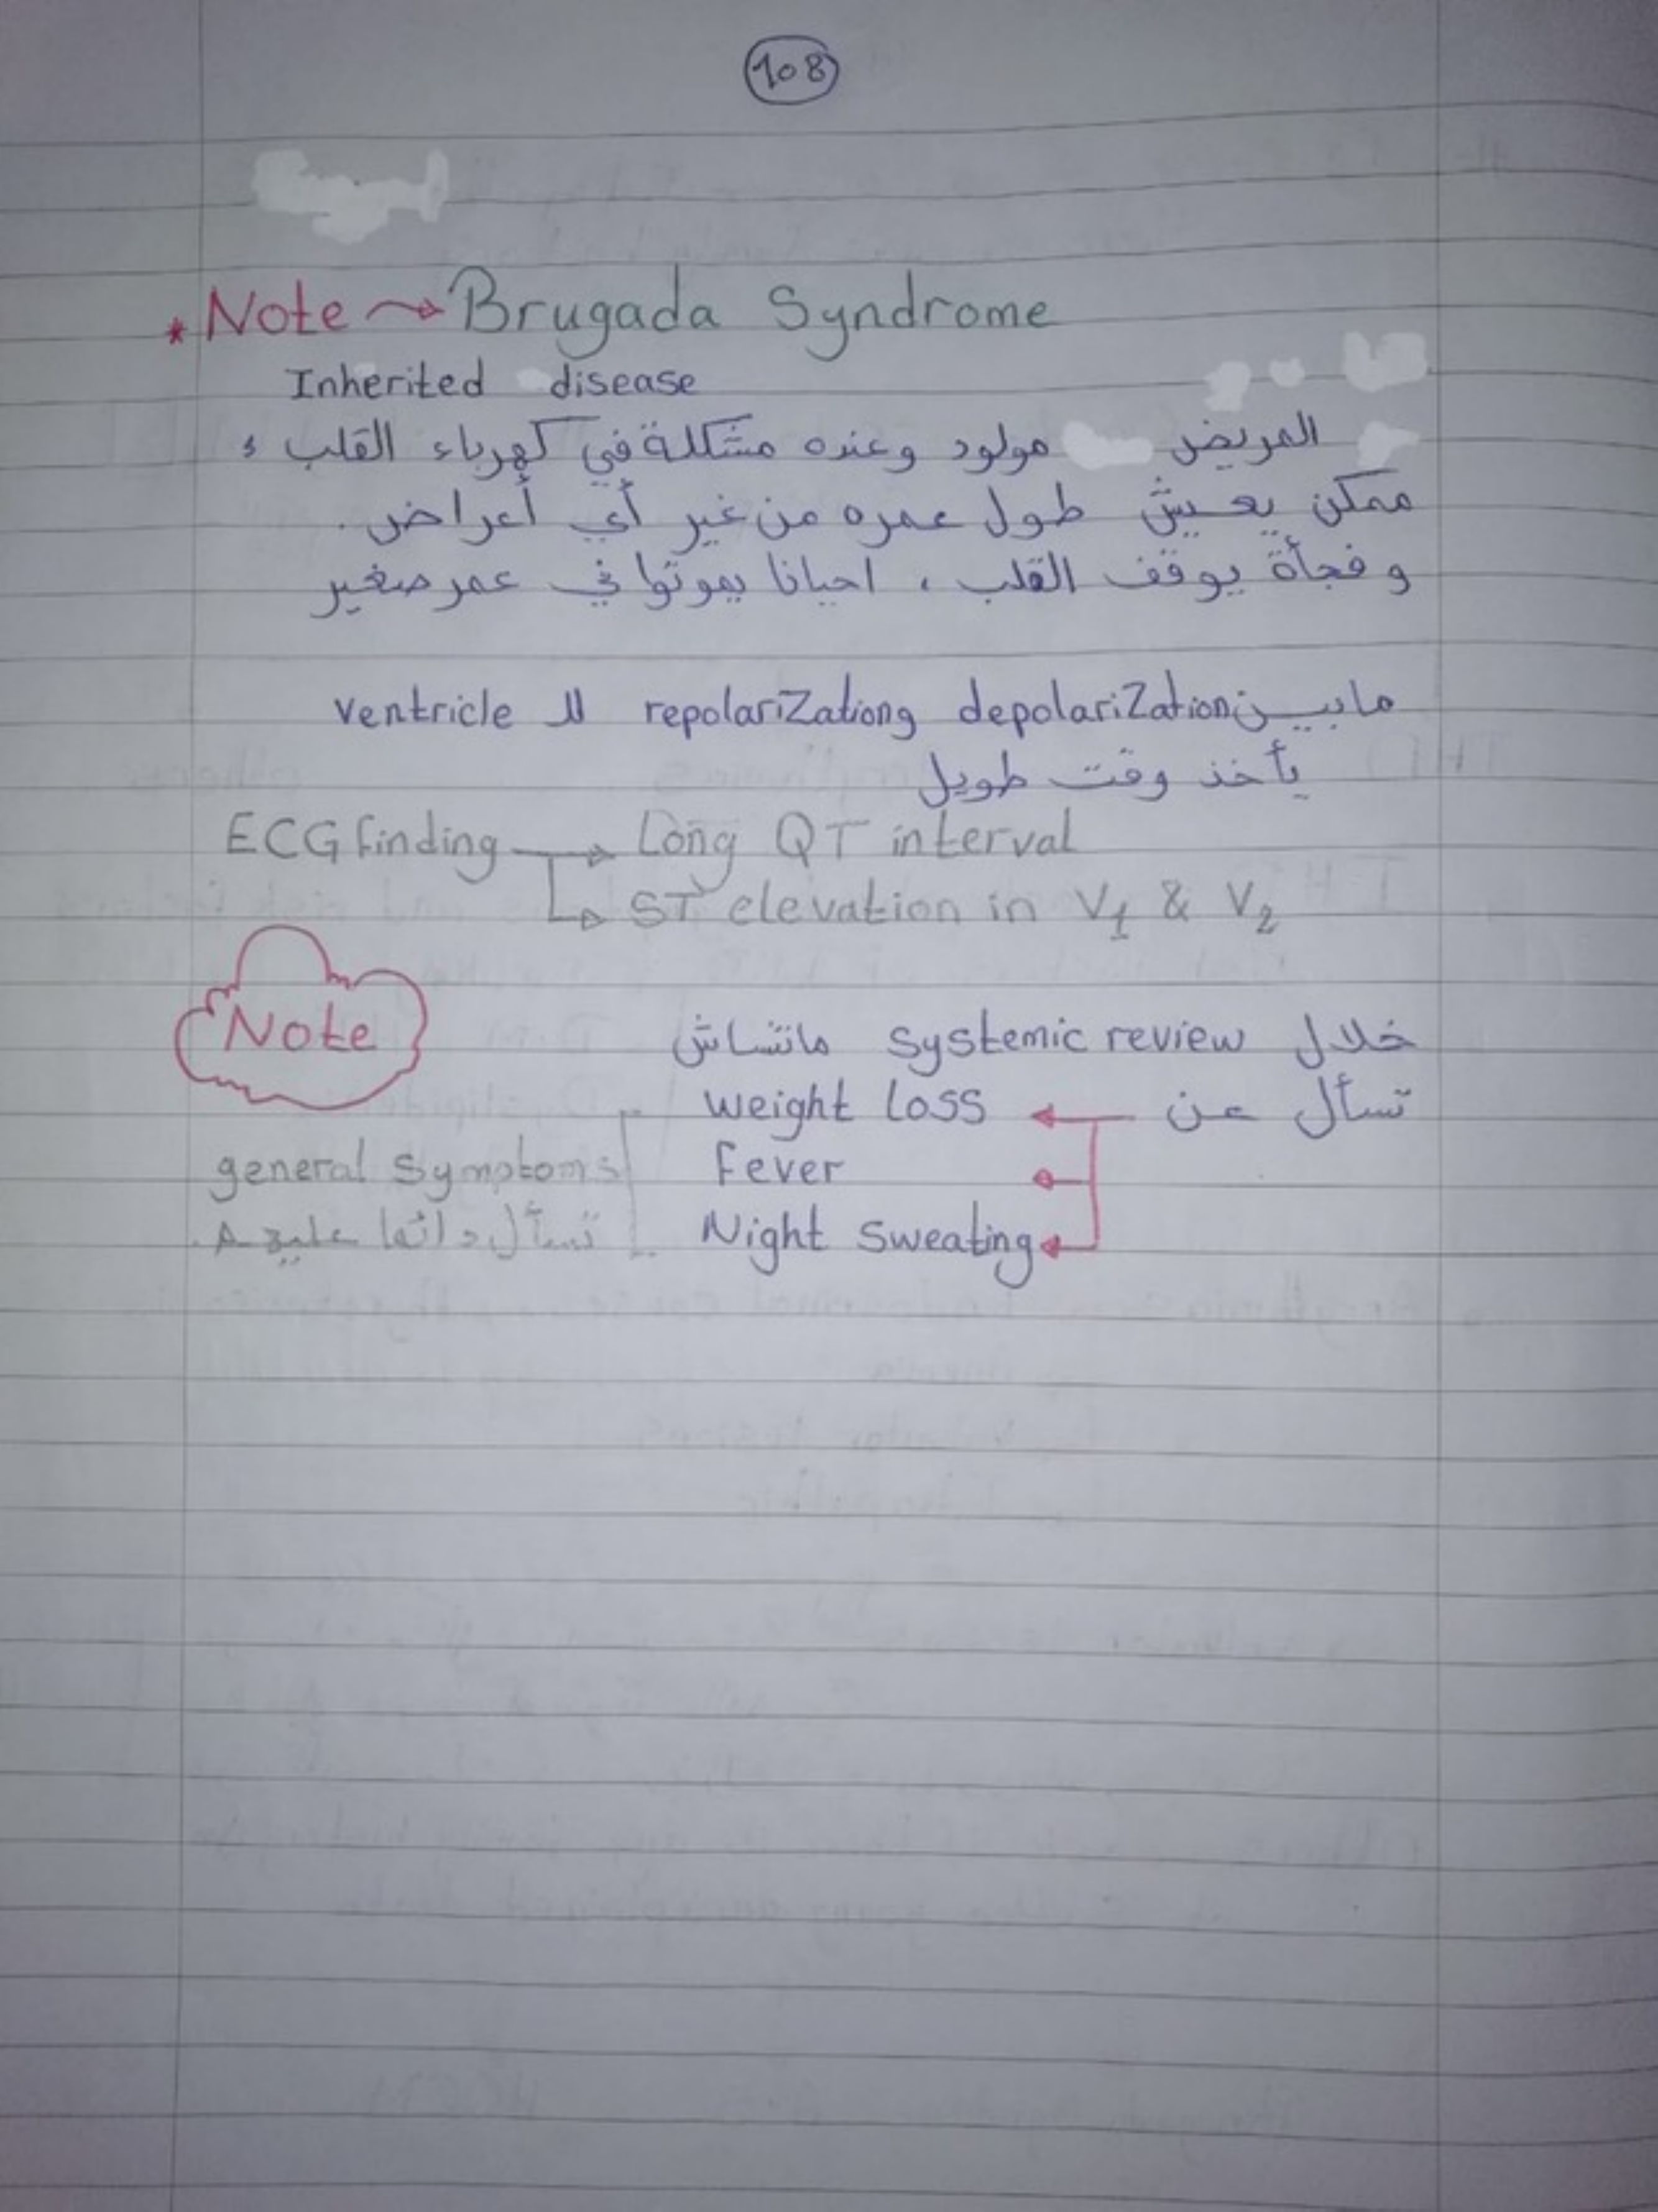 108
* Note → Brugada Syndrome
Inherited disease
المريض مولود وعنده مشكلة في كهرباء القلب ،
ممكن يعيش طول عمره من غير أي أعراض .
و فجأة يوقف القلب ، احيانا يموتوا في عمر صغير
مابين depolarization و repolarization لل ventricle
يأخذ وقت طويل
ECG finding → Long QT interval
→ ST elevation in V1 & V2
Note
خلال systemic review ماتنساش
تسأل عن ← weight loss
Fever
Night sweating
general symptoms
تسأل دائما عليهم .